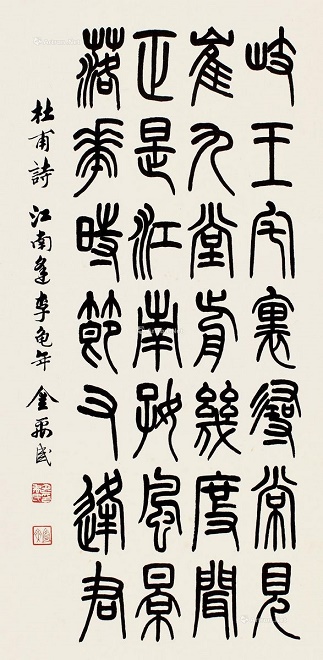 岐王宅裏尋常見
崔九堂前幾度聞
正是江南好風景
落花時節又逢君
杜甫詩 江南逢李龜年 金禹民